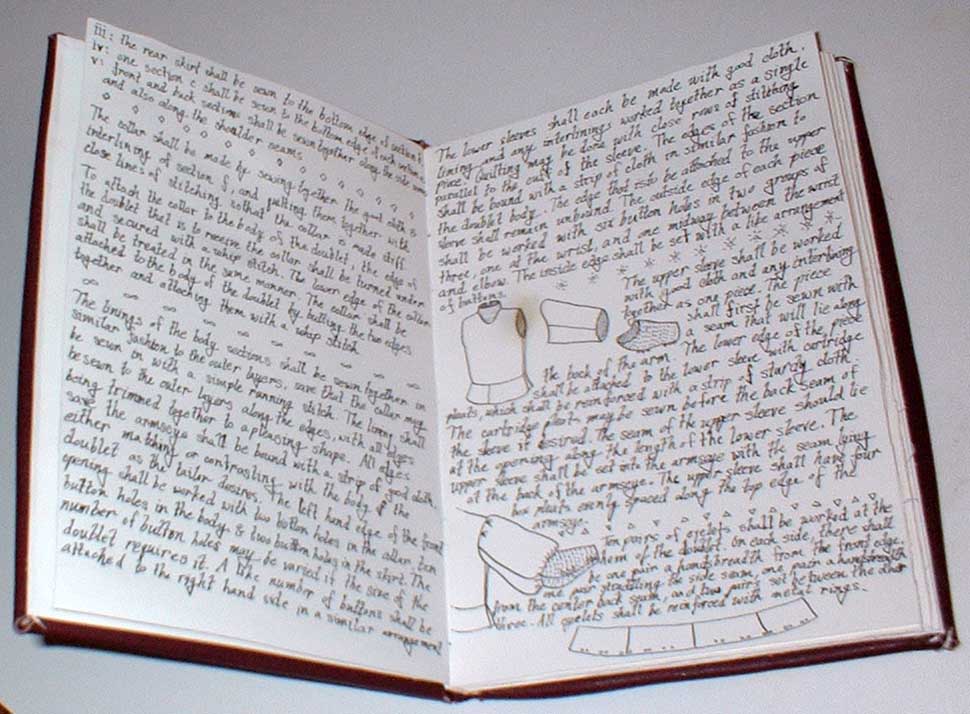 iii: the rear skirt shall be sewn to the bottom edge of section
iv: one section c shall be sewn to the bottom edge of each
v: front and back sections shall be sewn together along the side seams
and also along the shoulder seams.
The collar shall be made by sewing together the good cloth &
interlining of section f, and quilting them together with
close lines of stitching, so that the collar is made stiff.
To attach the collar to the body of the doublet, the edge of
the doublet that is to receive the collar shall be turned under
and secured with a whip stitch. The lower edge of the collar
shall be treated in the same manner. The collar shall be
attached to the body of the doublet by butting the two edges
together and attaching them with a whip stitch.
The linings of the body sections shall be sewn together in
similar fashion to the outer layers, save that the collar may
be sewn in with a simple running stitch. The lining shall
be sewn to the outer layers along the edges, with all edges
being trimmed together to a pleasing shape. All edges
save the armseye shall be bound with a strip of good cloth,
either matching or contrasting with the body of the
doublet as the tailor desires. The left hand edge of the front
opening shall be worked with two button holes in the collar, ten
button holes in the body, & two button holes in the skirt. The
number of button holes may be varied if the size of the
doublet requires it. A like number of buttons shall be
attached to the right hand side in a similar arrangement
The lower sleeves shall each be made with good cloth,
lining, and any interlinings worked together as a single
piece. Quilting may be done with close rows of stitching
parallel to the cuff of the sleeve. The edges of the section
shall be bound with a strip of cloth in similar fashion to
the doublet body. The edge that is to be attached to the upper
sleeve shall remain unbound. The outside edge of each piece
shall be worked with six button holes in two groups of
three, one at the wrist, and one midway between the wrist
and elbow. The inside edge shall be set with a like arrangement
of buttons.
The upper sleeve shall be worked
with good cloth and any interlining
together as one piece. The piece
shall first be sewn with
a seam that will lie along
the back of the arm. The lower edge of the piece
shall be attached to the lower sleeve with cartridge
pleats, which shall be reinforced with a strip of sturdy cloth.
The cartridge pleats may be sewn before the back seam of
the sleeve if desired. The seam of the upper sleeve should lie
at the opening along the length of the lower sleeve. The
upper sleeve shall be set into the armseye with the seam lying
at the back of the armseye. The upper sleeve shall have four
box pleats evenly spaced along the top edge of the
armseye.
Ten pairs of eyelets shall be worked at the
hem of the doublet. On each side, there shall
be one pair a handsbreadth from the front edge,
one pair straddling the side seam, one pair a handsbreadth
from the center back seam, and two pairs set between the other
three. All eyelets shall be reinforced with metal rings.